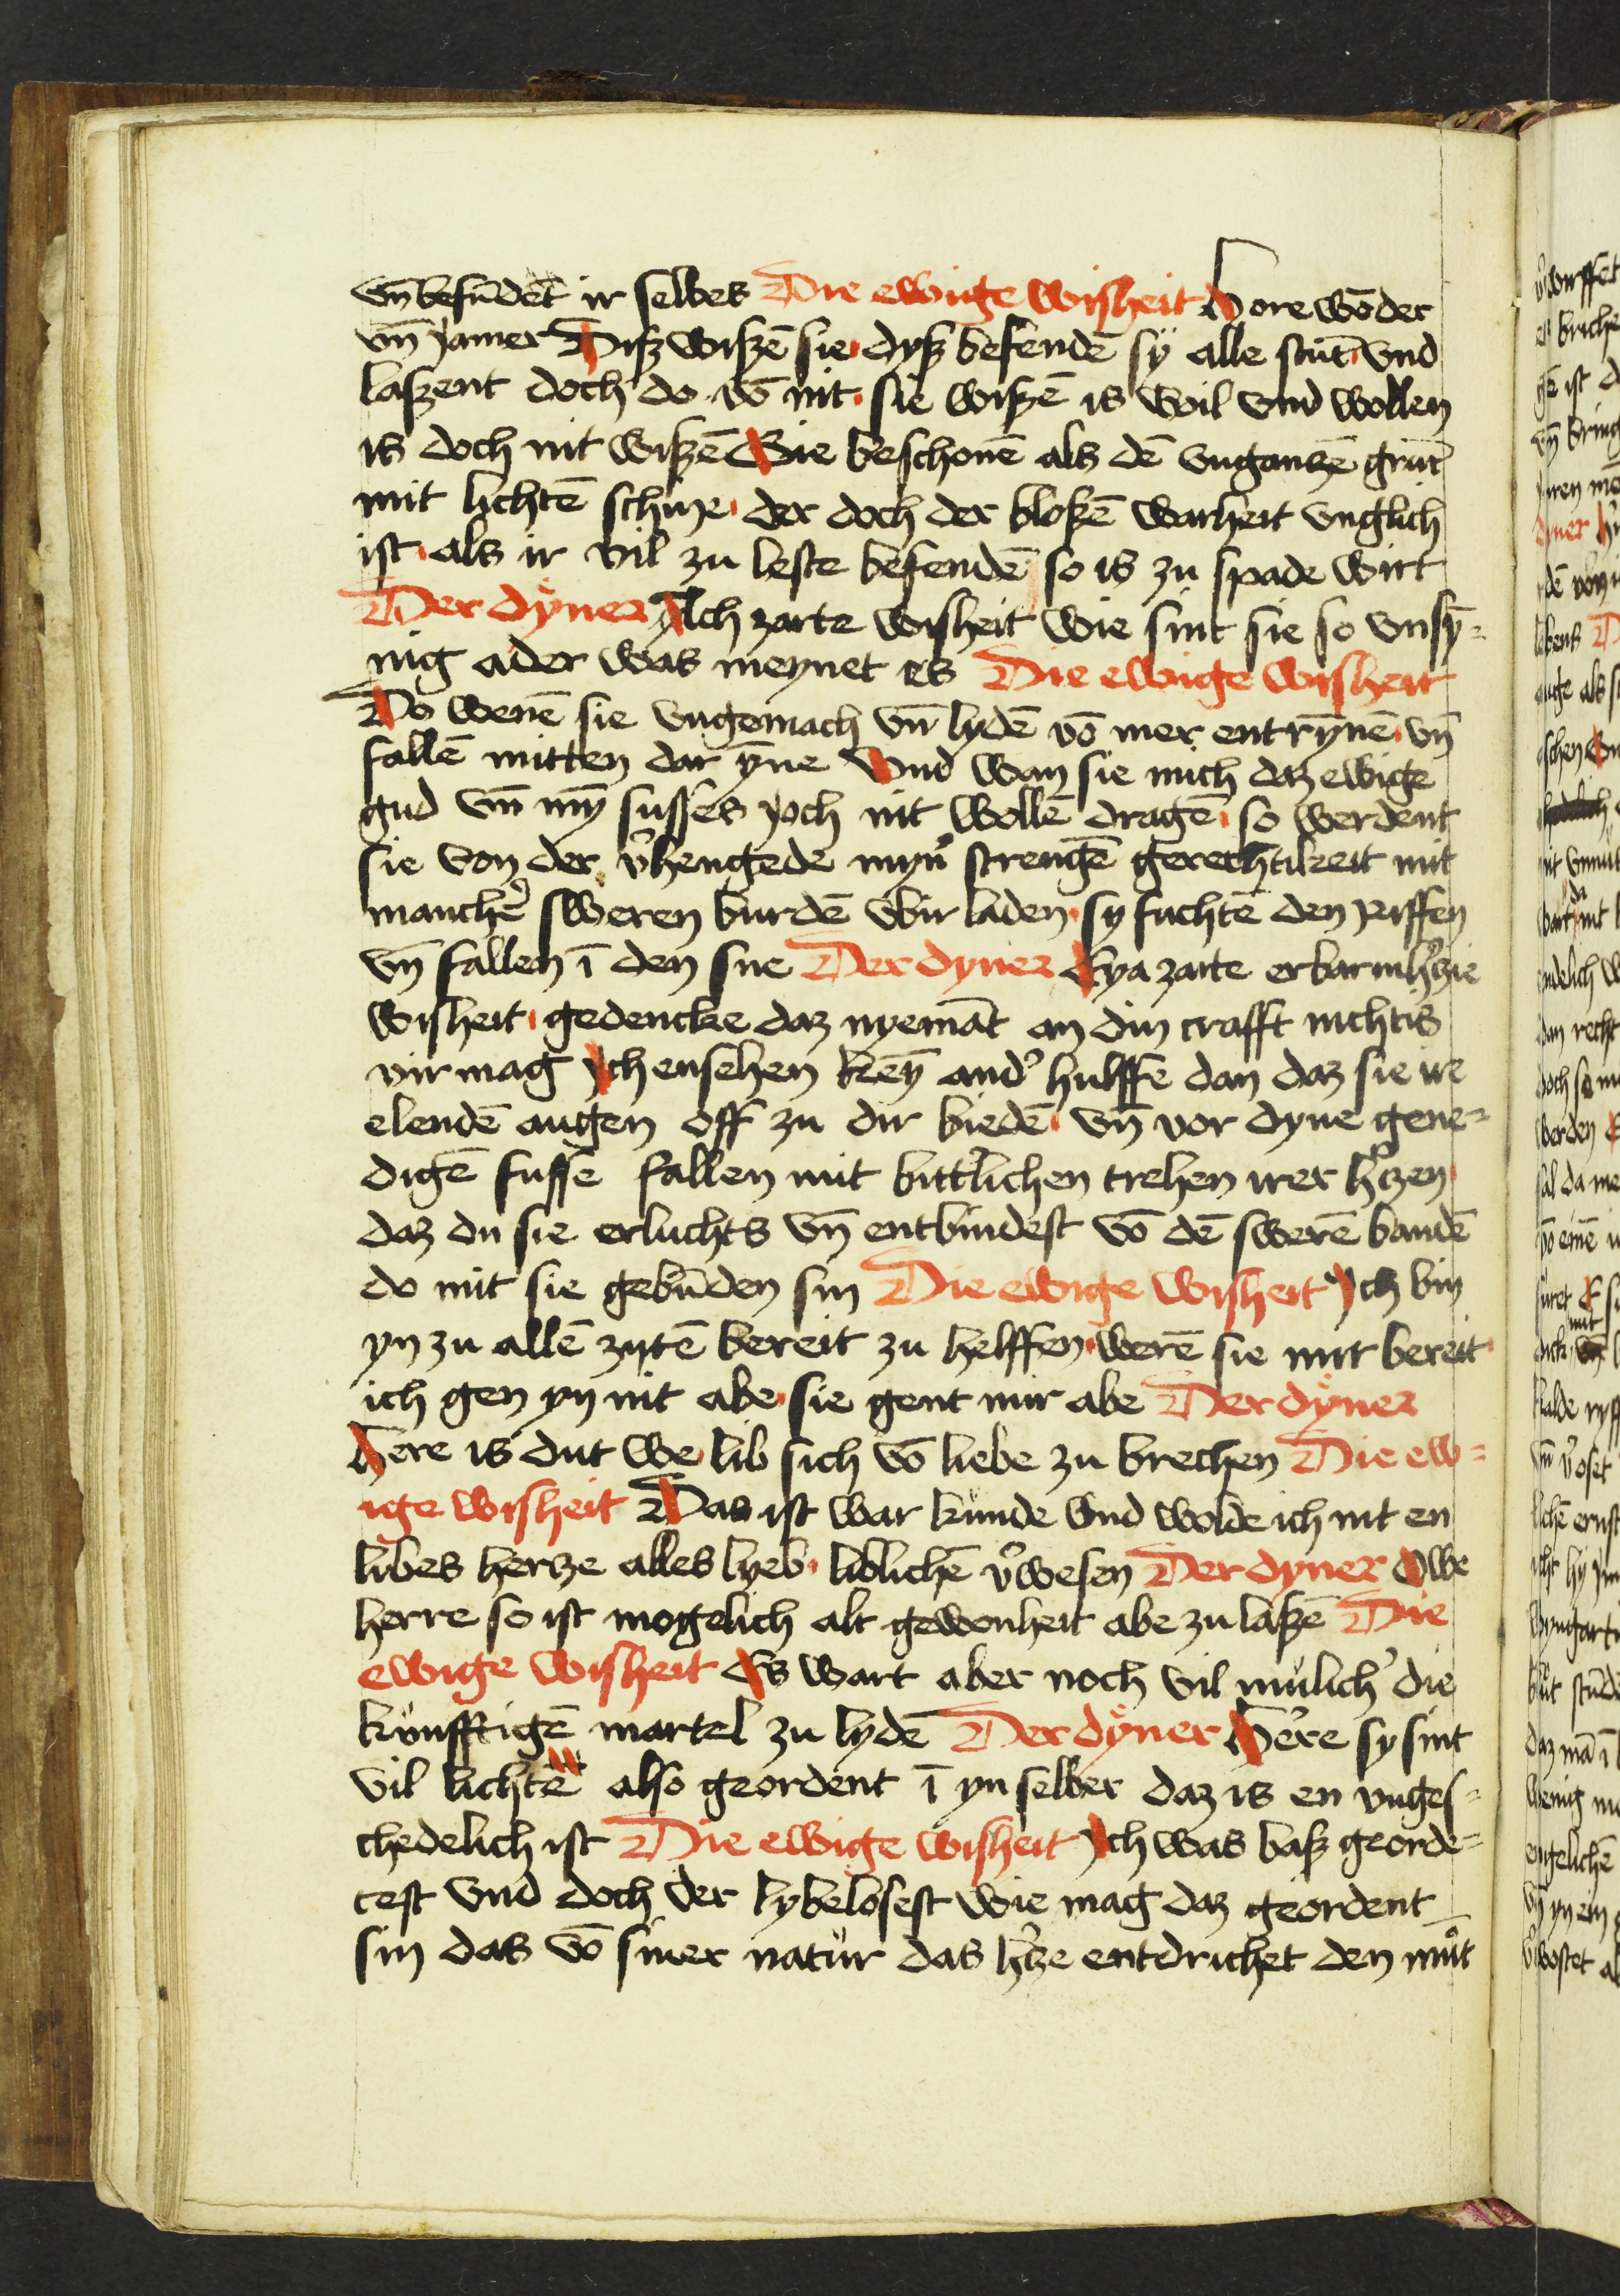 vn̄ befūdēt ir selbes Die ewige wisheit Hore wōder
vn̄ jamer Diſz wiſzē sie dyſz befendē sÿ alle stūt vnd
laſzent doch do vō nit sie wiſzē is wil vnd wollen
is doch nit wiſzē Sie beschonē als dē vnganzē grūt
mit lichtē schine der doch der bloſzē warheit vnglich
ist als ir vil zu leste befendē so is zu spade wirt
Der dÿner Ach zarte wisheit wie sint sie so vnsȳ-
nig ader was meynet es Die ewige wisheit
Do wenē sie vngemach vn̄ lydē vō mer entrȳnē vn̄
fallē mitten dar ȳne Vnd wan sie mich daz ewige
gud vn̄ mȳ susses joch nit wollē dragē so werdent
sie von der v̓hengede myn̓ strengē gerechtikeit mit
manchē sweren burdē vbir laden sy fuchtē den riffen
vn̄ fallen ī den sne Der dyner Eya zarte erbarmh̓zie
wisheit gedencke daz nyemāt an din crafft nichtis
vir mag Ich ensehen keȳ and̓ hulffe dan daz sie ire
elendē augen off zu dir biedē vn̄ vor dyne gene-
digē fusse fallen mit bitt̓lichen trehen irer h̓zen
daz du sie erluchts vn̄ entbindest vō dē swerē bandē
do mit sie gebūden sin Die ewige wisheit Ich bin
yn zu allē zijtē bereit zu helffen werē sie mir bereit
ich gen yn nit abe sie gent mir abe Der dÿner
Here is dut we lib sich vō liebe zu brechen Die ew-
ige wisheit Das ist war kunde vnd wolde ich nit en
libes hertze alles lyeb liblichē v̓wesen Der dyner Owe
herre so ist mogelich alt gewonheit abe zu laſzē Die
ewige wisheit Es wart aber noch vil mülich̓ die
künfftigē martel zu lydē Der dÿner Here sy sint
vil lichtē also geordent ī yn selber daz is en vnges-
chedelich ist Die ewige wisheit Ich was baſz georde-
test vnd doch der lybelosest wie mag daz geordent
sin das vō siner natür das h̓ze entdrichet den mūt